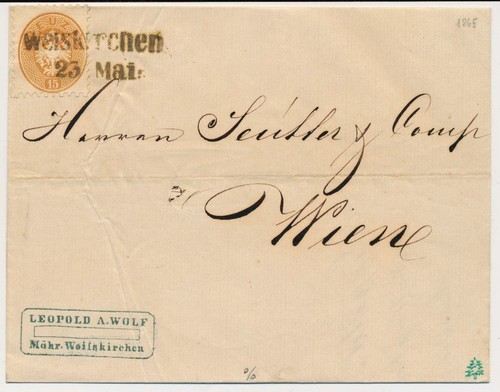 1865
KREUZER
15
Weiskirchen
23 Mai.
Herren Seutter & Comp
Wien
LEOPOLD A. WOLF
Mähr. Weifskirchen